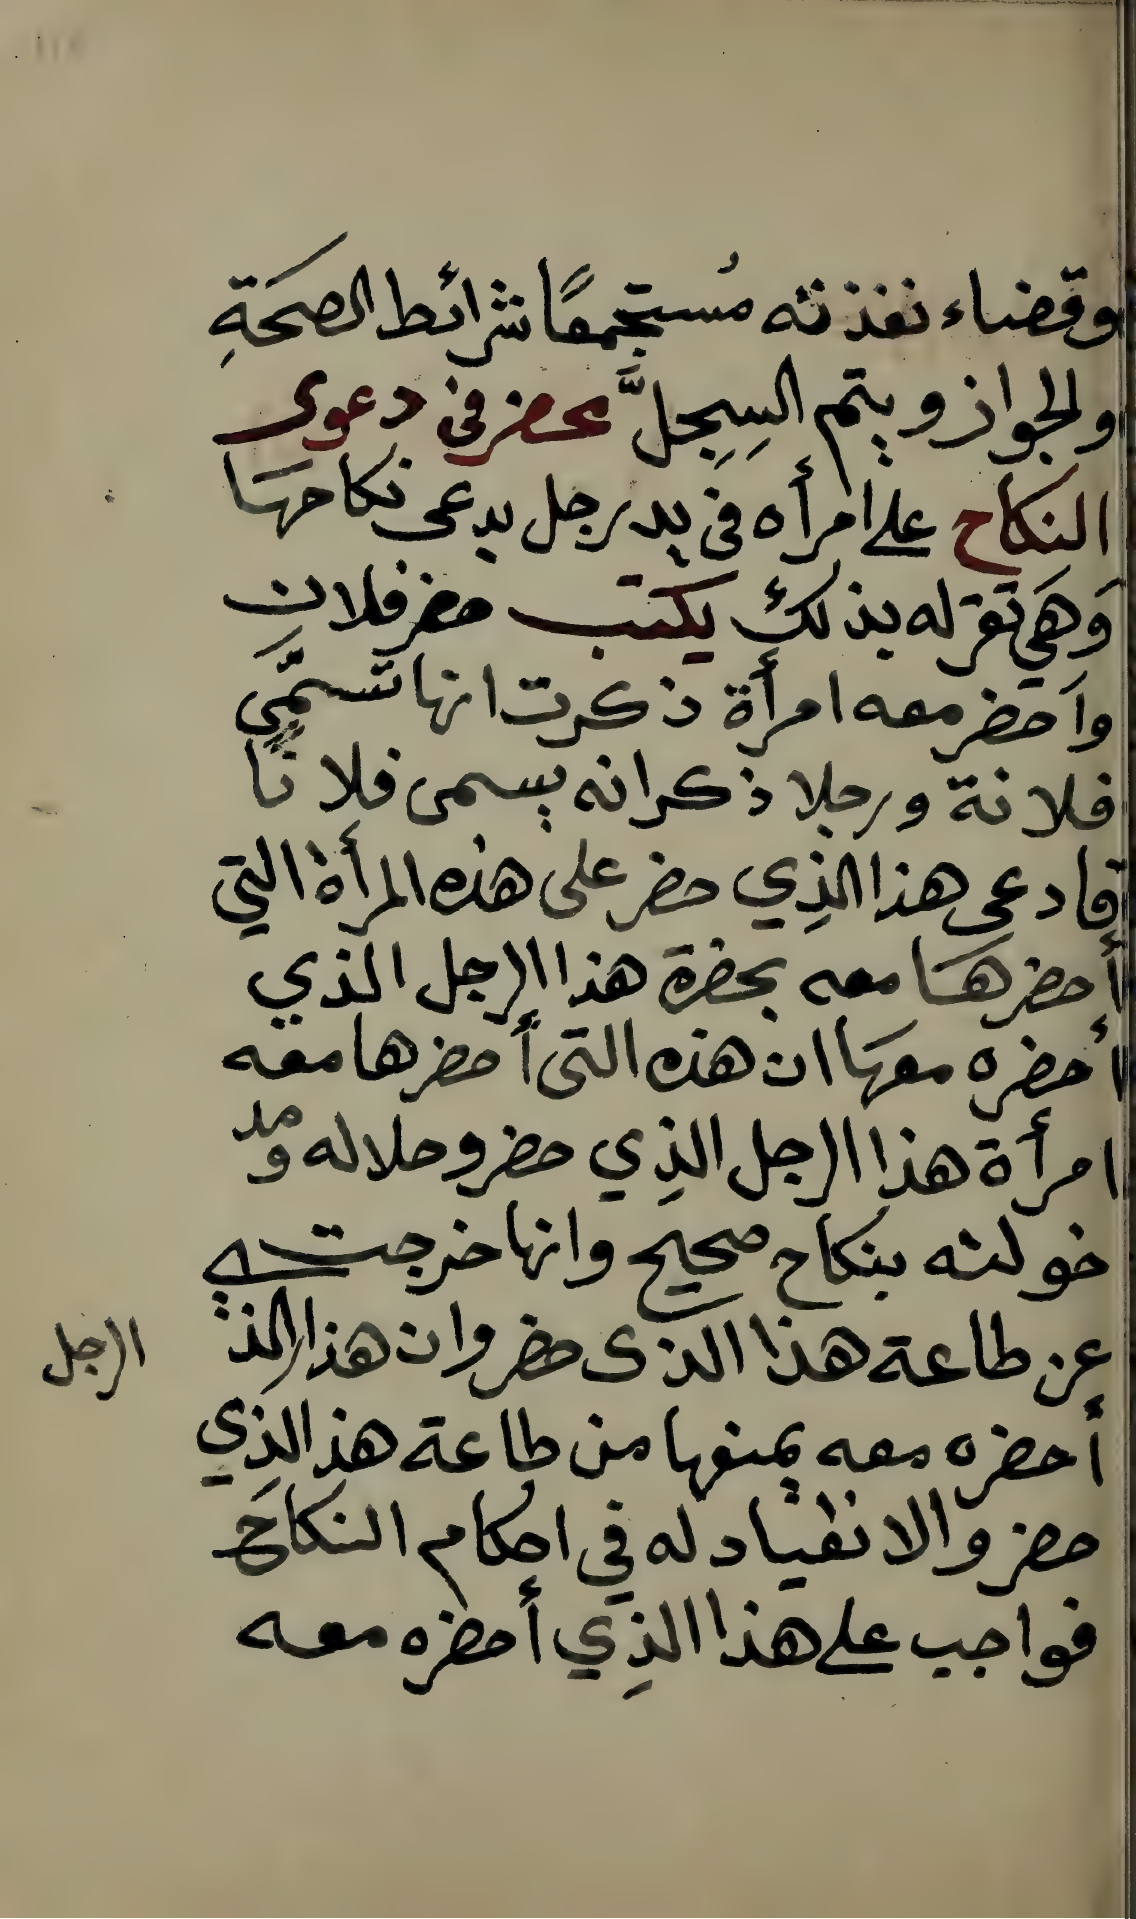 وقضاء نفذته مُستجمعًا شرائط الصحَةِ
والجواز ويتم السِجِلَّ محضر في دعوى
النكاح على امرأه في يد رجل يدعى نكاحهَا
وَهَي تقر له بذلك يكتب حضر فلان
وأحضر معه امرأة ذكرت انها تسمّى
فلانة ورجلا ذكر انه يسمى فلانًا
فادعى هذا الذِي حضر على هذه المرأة التي
أحضرهَا معه بحضرة هذا الرجل الذي
أحضره معهَا ان هذه التى أحضرها معه
امرأة هذا الرجل الذِي حضر وحلاله ومد
خولته بنكاح صحيح وانها خرجت
عن طاعة هذا الذى حضر وان هذا الذي
الرجل
أحضره معه يمنعها من طاعة هذ الذِي
حضر والانقياد له في احكام النكاح
فواجب على هذا الذِي أحضره معه